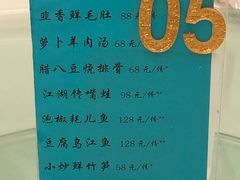 韭香鲜毛肚 88元/份
萝卜羊肉汤 68元/份
腊八豆烧排骨 68元/份**
江湖馋嘴蛙 98元/份**
泡椒耗儿鱼 128元/份**
豆腐乌江鱼 128元/份*
小炒鲜竹笋 58元/份*
05